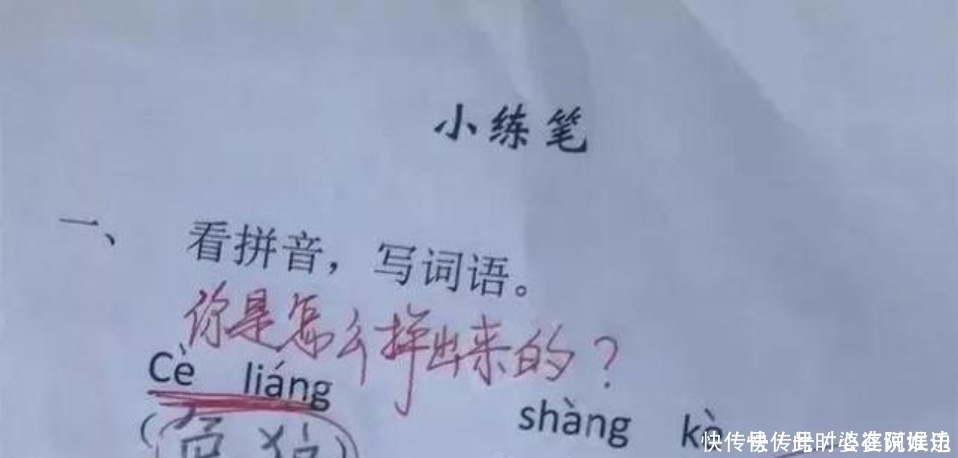 小练笔
一、 看拼音，写词语。
你是怎么拼出来的？
Cè liáng
shàng kè